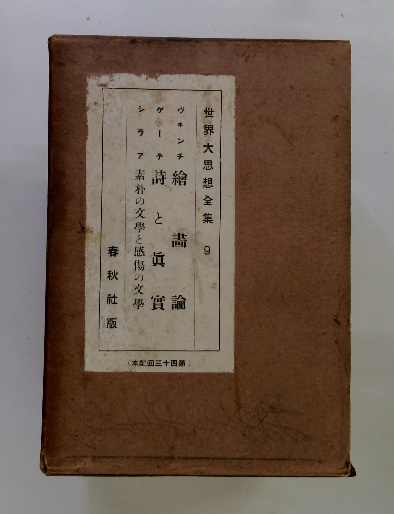 世界大思想全集 9
ヴヰンチ 繪畫論
ゲーテ 詩と眞實
シラア 素朴の文學と感傷の文學
春秋社版
(第四十三回配本)